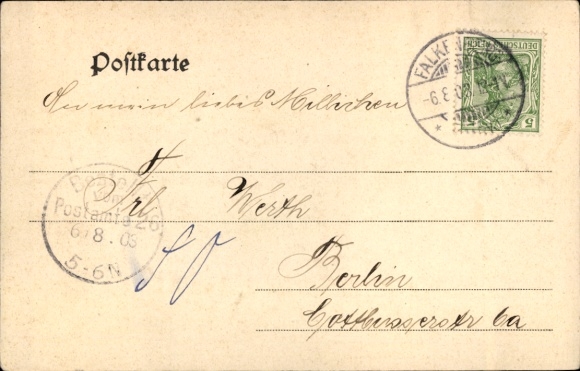 Postkarte
An mein liebes Millichen
Frl Werth
Berlin
Cottbusserstr 6a
FALKEN
-6.8.03
DEUTSCHES REICH
5
Postamt 26
6.8.03
5-6N